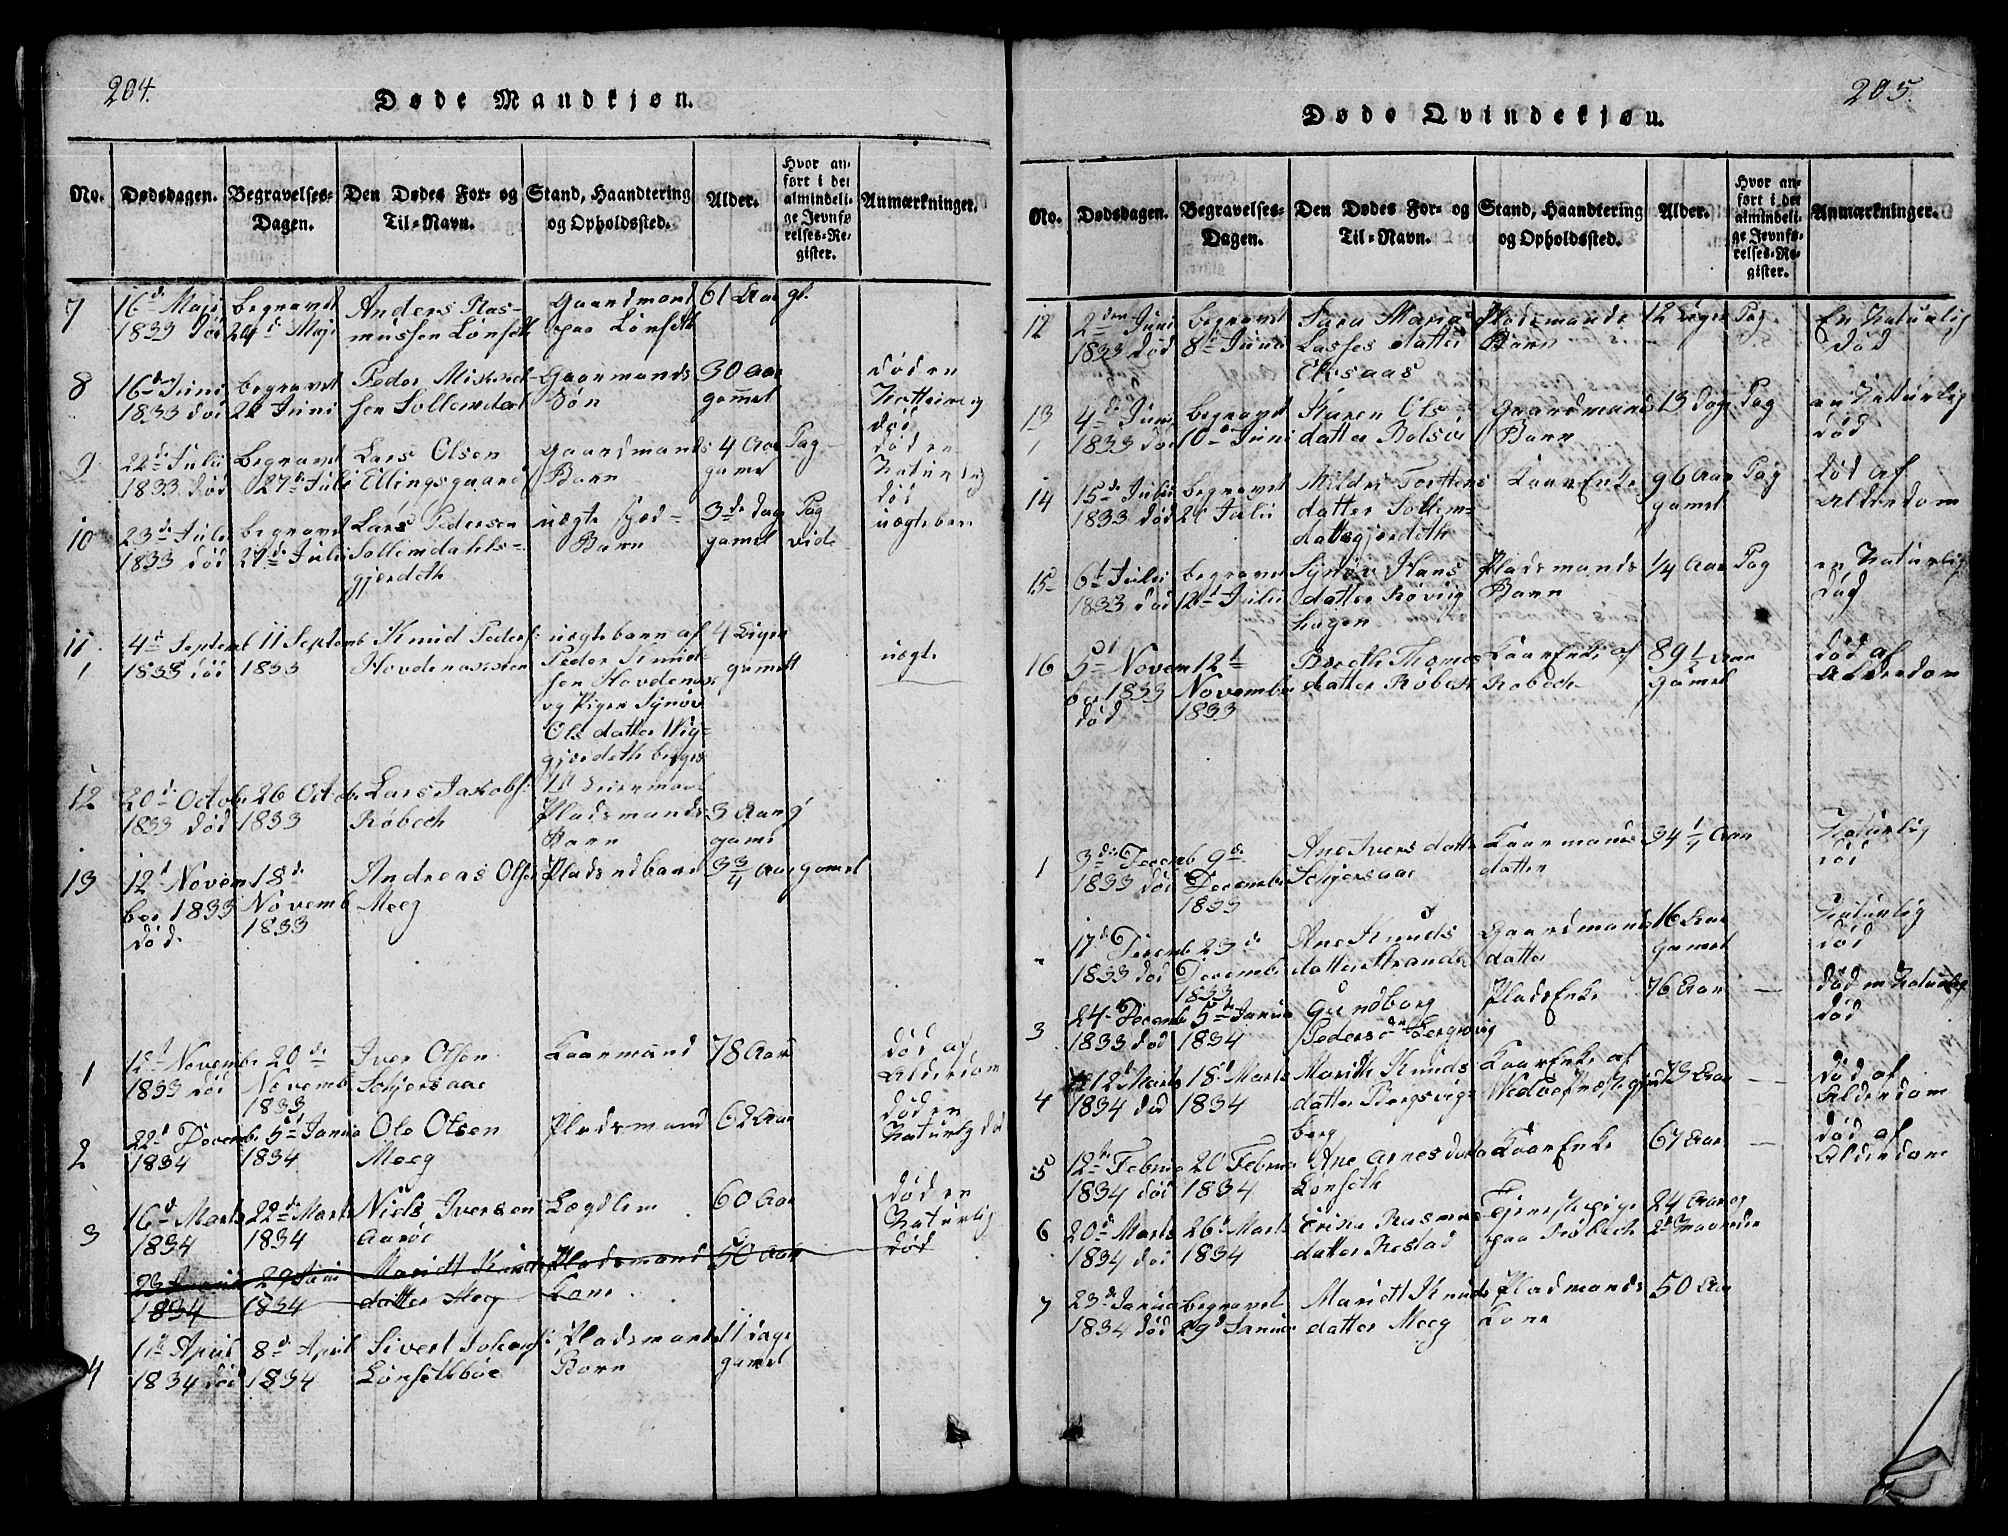 204.
Døde Mandkjøn.
No.
Dødsdagen.
Begravelses-
Dagen.
Den Dødes For- og
Til-Navn.
Stand, Haandtering
og Opholdssted.
Alder.
Hvor an-
ført i det
almindeli-
ge Jevnfø-
relses-Re-
gister.
Anmærkninger.
7
16de Maji
1833 død
begravet
24de Maji
Anders Ras-
mussen Lønseth
Gaardmand
paa Lønseth
61 Aar gl.
8
16de Juni
1833 død
begravet
Juni
Peder
sen Sollemdal
Gaarmands
Søn
30 Aar
gamel
død en
død
9
22de Julii
1833 død
begravet
27de Juli
Lars Olsen
Ellingsgaard
Gaardmands
Barn
4 Aar
gamel
Pag
død en
Naturlig
død
10
23de Julii
1833 død
begravet
27de Julii
Lars Pedersen
Sollemdahls-
gjerdeth
uægte
Barn
3de dag
gamel
Pag
vide
uægte
11
1
4de Septemb
1833 død
11 Septemb
1833
Knud Peders:
Hovdenakken
uægte barn af
Peder Knud
sen Hovdenak
og Pigen Synøv
Ols datter
gjerdeth
4 Uger
gamelt
uægte
12
20de Octob
1833 død
26 Octob
1833
Lars Jakobs:
Røbech
Pladsmands
Barn
3 Aar
gaml
13
12te Novem
ber 1833
død.
18de
Novemb
1833
Andreas Olsen
Moeg
Pladsmdbarn
3 3/4 Aar gamel
1
12te Novemb
1833 død
20de
Novemb
1833
Iver Olsen
Solgersaae
Kaarmand
78 Aar
død af
Alderdom
2
22de Decemb
1834
5te Janua
1834
Ole Olsen
Moeg
Pladsmand
62 Aar
død en
Naturlig død
3
16de Marts
1834
22de Marts
1834
Niels Iversen
Aarøe
Lægdlem
60 Aar
død en
Naturlig
død
1834
29 Janu
1834
Maridt Knuds
datter Moeg
Pladsmand
Kone.
50 Aar
4
April
1834 død
8de April
1834
Sivert
Lønsethbøe
Pladsmands
Barn
11 dage
gamel
205.
Døde Qvindekjøn.
No.
Dødsdagen.
Begravelses-
Dagen.
Den Dødes For- og
Til-Navn.
Stand, Haandtering
og Opholdssted.
Alder.
Hvor an-
ført i det
almindeli-
ge Jevnfø-
relses-Re-
gister.
Anmærkninger.
12
2den Juni
1833 død
begravet
8de Junii
Sara Maria
Lasses datter
Elvsaas
Pladsmands
Barn
12 Uger
Pag
En Naturlig
død
13
1
4de Juni
1833 død
begravet
10de Juni
Karen Ols
datter Bolsøe
Gaardmands
Barn
13 dage
Pag
en Naturlig
død
14
15de Julii
1833 død
begravet
Julii
Mildri
datter Sollem-
dalsgjerdeth
KaarEnke
96 Aar
gamel
Pag
død af
Alderdom
15
6te Julii
1833 død
begravet
12te Julii
Synøv Hans
datter Røviig
hagen
Pladsmands
Barn
1/4 Aar
Pag
en Naturlig
død
16
5te Novem
ber 1833
død
12te
November
1833
Bereth Thomas
datter Røbek
KaarEnke af
Røbech
89 1/2 Aar
gamel
død af
Alderdom
1
3de Decemb
1833 død
9de
Decembr
1833
Ane Ivers datter
Solgersaae
Kaarmands
datter
34 1/4 Aar
Naturlig
død
17de Decemb
1833 død
23de
Decembr
1833
Ane Knuds
datter Strande
Gaardmands
datter
16 Aar
gamel
Naturlig
død
3
24 Decemb
1833 død
5te Janua
1834
Gundborg
Peders Bergsviig
PladsEnke
76 Aar
død en Naturlig
død
4
12te Marts
1834 død
18de Marts
1834
Marith Knuds
datter Bergsvigs
berg
KaarEnke af
73 Aar
død af
Alderdom
5
12te Februa
1834 død
20 Februa
1834
Ane Arnes datter
Lønseth
KaarEnke
67 Aar
død af
Alderdom
6
20de Marts
1834 død
26de Marts
1834
Erika Rasmus
datter Restad
Tjenestepige
paa Røbech
24 Aar og
2de Maaneder
7
23de Janua
1834 død
begravet
29de Janua
Maridt Knuds
datter Moeg
Pladmands
Kone
50 Aar